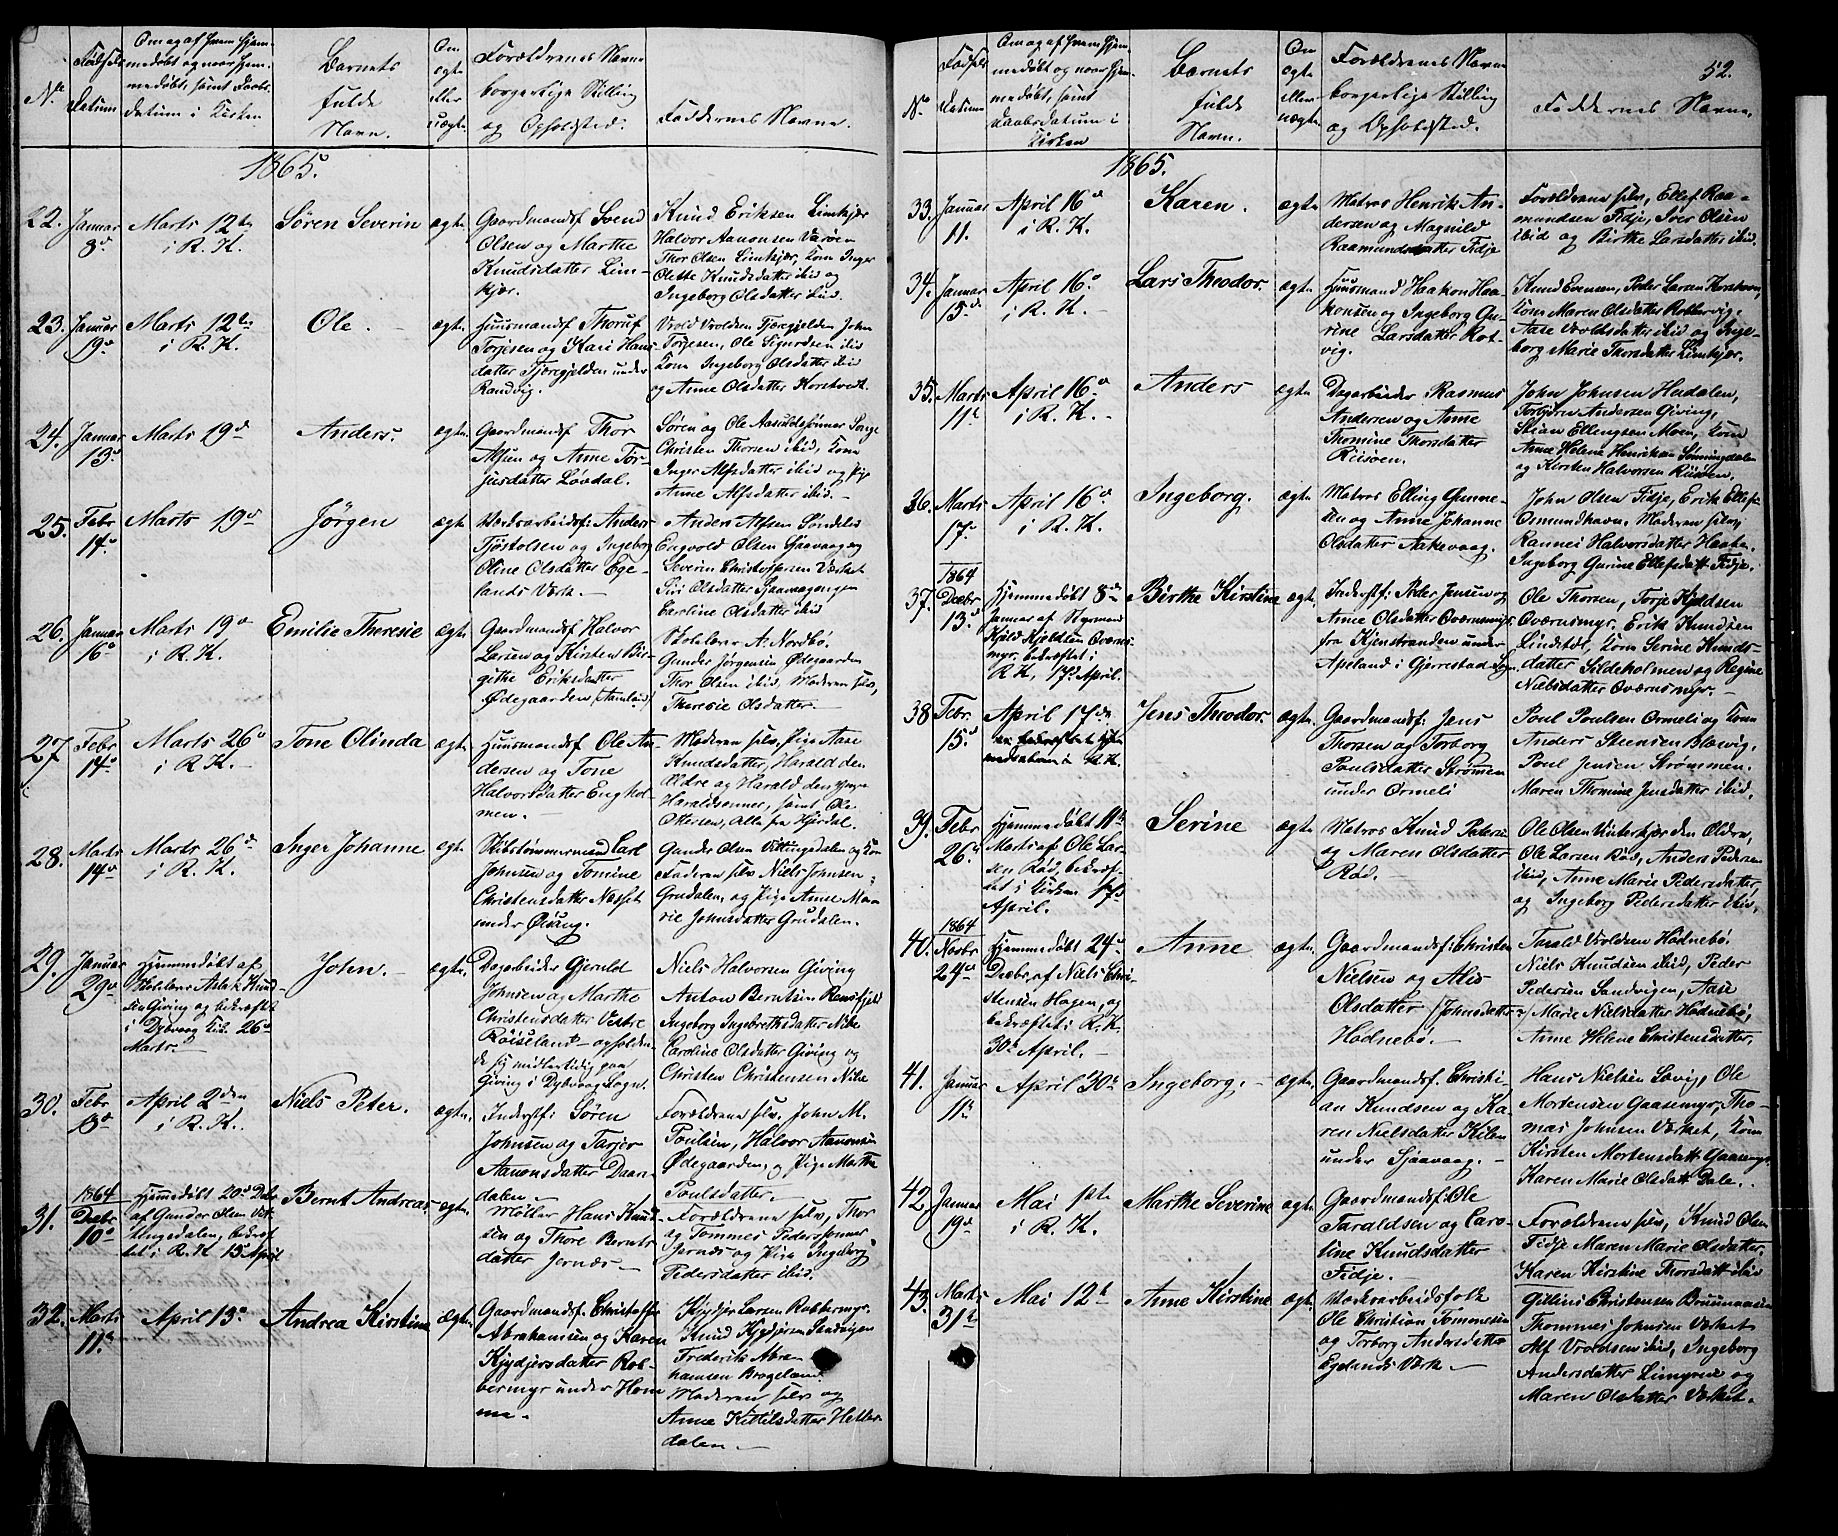 No
Fødsels
Datum
Om og af hvem hjem-
medøbt og naar hjem-
medøbt, samt Daabs-
datum i Kirken
Barnets
fulde
Navn.
Om
ægte
eller
uægte
Forældrenes Navne
borgerlige Stilling
og Opholdsted.
Faddernes Navne.
1865.
22. Januar
8de
Marts 12te
i R. K.
Søren Severin
ægte
Gaardmandsf. Svend
Olsen og Marthe
Knudsdatter Lim-
kjær.
Knud Eriksen Limkjær
Halvor Aanonsen
Thor Olsen Limkjær, Kone Inger
Olette Knudsdatter ibid og
Ingeborg Olsdatter ibid.
23. Januar
19de
Marts 12te
i R. K.
Ole.
ægte
Huusmandsf. Thoruf
Torjesen og Kari Hans-
datter Tjæregjelden under
Randvig.
Vrold Vroldsen Tjæregjelden, John
Torjesen, Ole Sigurdsen ibid
Kone Ingeborg Olsdatter ibid
og Anne Olsdatter
24. Januar
13de
Marts 19de
Anders.
ægte
Gaardmandsf. Thor
Alfsen og Anne Tor-
jusdatter Løvdal.
Søren og Ole Songe
Christen Thorsen ibid, Kone
Inger Alfsdatter ibid og Pige
Anne Alfsdatter ibid.
25. Febr
14de
Marts 19de
Jörgen
ægte
Værksarbeidsf. Anders
Tjøstolsen og Ingeborg
Oline Olsdatter Ege-
lands Værk.
Anders Alfsen Søndeled
Engvold Olsen Sjaavaag og
Severin Christophersen Værket
Siri Olsdatter
Caroline Olsdatter ibid
26. Januar
16de
Marts 19de
i R. K.
Emilie Theresie
ægte
Gaardmandsf. Halvor
Larsen og Kirsten Bir-
githe Eriksdatter
Ødegaarden (Aamland)
Skolelærer A. Nordbø.
Gunder Jørgensen Ødegaarden
Thor Olsen ibid, Moderen selv,
Theresie Olsdatter.
27. Febr
14de
Marts 26de
i R. K.
Tone Olinda
ægte
Huusmandsf. Ole An-
dersen og Tone
Halvorsdatter Enghol-
men.
Moderen selv, Pige Aase
Knudsdatter, Harald den
Ældre og Harald den yngre
Haraldsønner, samt Ole
Ottersen, Alle fra Hjerdal.
28. Marts
14de
Marts 26de
i R. K.
Inger Johanne
ægte
Skibstømmermand Carl
Johnsen og Tomine
Christensdatter Næsset
under Øisang.
Gunder Olsen Vittingsdalen og Kone
Faderen selv Niels Johnsen
Grudalen, og Pige Anne Ma-
rie Johnsdatter Grudalen.
29. Januar
29de
Hjemmedøbt af
Skolelærer Aslak Knud-
sen Giving og bekræftet
i Dybvaag Kirke 26de
Marts.
John.
ægte
Dagarbeider Gjeruldt
Johnsen og Marthe
Christensdatter Vestre
Röiseland opholden-
de sig midlertidig paa
Giving i Dybvaag Sogn.
Niels Halvorsen Giving
Anton Berntsen
Ingeborg Ingebrethsdatter
Caroline Olsdatter Giving og
Christen Christensen
30. Febr
18de
April 2den
i R. K.
Niels Peter.
ægte
Inderstf. Søren
Johnsen og Tarjer
Aanonsdatter Daas-
dalen.
Forældrene selv, John M.
Poulsen, Halvor Aanonsen
Ødegaarden, og Pige Marthe
Poulsdatter.
31.
1864
Decbr
10de
Hjemmedøbt 20de Decbr
af Gunder Olsen Vit-
tingsdalen, bekræf-
tet i R. K. 13de April
Bernt Andreas
ægte
Møller Hans Knud-
sen og Thore Bernts-
datter Jernæs.
Forældrene selv, Thor
og Tommes Pederssønner
Jernæs og Pige Ingeborg
Pedersdatter ibid.
32. Marts
11te
April 13de
Andrea Kirstine
ægte
Gaardmandsf. Christoffer
Abrahamsen og Karen
Kjydjersdatter Rob-
bermyr under Hom-
me.
Kjydjer Larsen Robbermyr.
Knud Kjydjersen Sandvigen
Frederik Abra-
hamsen Brogeland
Moderen selv og
Anne Kittilsdatter Heller-
dalen.
52.
No
Fødsels
Datum
Om og af hvem hjem-
medøbt og naar hjem-
medøbt, samt
daabsdatum i
Kirken
Barnets
fulde
Navn.
Om
ægte
eller
uægte
Forældrenes Navne
borgerlige Stilling
og Opholdsted.
Faddernes Navne.
1865.
33. Januar
11.
April 16de
i R. K.
Karen.
ægte
Matros Henrik An-
dersen og Magnild
Raamundsdatter Fidje
Forældrene selv, Ellef Raa-
mundsen Fidje, Iver Olsen
ibid og Birthe Larsdatter ibid.
34. Januar
15de
April 16de
i R. K.
Lars Theodor.
ægte
Huusmand Haakon Haa-
konsen og Ingeborg Gu-
rine Larsdatter Rot-
vig.
Knud Evensen, Peder Larsen
Kone Maren Olsdatter Robbervig.
Aase Vroldsdatter ibid og Inge-
borg Marie Thorsdatter Limkjær.
35. Marts
11te
April 16de
i R. K.
Anders
ægte
Dagarbeider Rasmus
Andersen og Anne
Thomine Thorsdatter
Riisøen.
John Johnsen Hudalen,
Torbjørn Andersen Giving,
Stian Ellingsen Moen, Kone
Anne Helene Henriksen
og Kirsten Halvorsen Riisøen.
36. Marts
17de
April 16de
i R. K.
Ingeborg.
ægte
Matros Elling Gunne-
sen og Anne Johanne
Olsdatter Aakevaag.
John Olsen Fidje, Erik Ellefs.
Osmundhavn. Moderen selv,
Rannei Halvorsdatter
Ingeborg Gurine Ellefsdatt. Fidje.
37.
1864
Decbr
13de
Hjemmedøbt 8de
Januar af Styrmand
Kjeld Kjeldsen Øværns-
myr, bekræftet i
R. K. 17de April.
Birthe Kirstine
ægte
Inderstf. Peder Jensen og
Anne Olsdatter Øværnsmyr
fra Kjenstranden under
Apeland i Gjerrestad Sogn
Ole Thorsen, Torje Kjeldsen
Øværnsmyr. Erik Knudsen
Lindstøl, Kone Serine Knuds-
datter Sildeholmen og Regine
Nielsdatter Øværnsmyr.
38 Febr.
15de
April 17de
Jens Theodor.
ægte
Gaardmandsf. Jens
Thorsen og Torborg
Poulsdatter Strømmen
under Ormeli
Poul Poulsen Ormeli og Kone
Anders Steensen Blævig.
Poul Jensen Strømmen.
Maren Thomine Jensdatter ibid.
39. Febr
26de
Hjemmedøbt 11te
Marts af Ole Lar-
sen Rød, bekræf-
tet i Kirken 17de
April.
Serine
ægte
Matros Knud Peterse
og Maren Olsdatter
Rød.
Ole Olsen Vinterkjær den Ældre,
Ole Larsen Rød, Anders Pedersen
ibid, Anne Marie Pedersdatter,
og Ingeborg Pedersdatter ibid.
40.
1864
Novbr
24de
Hjemmedøbt 24de
Decbr. af Niels Chri-
stensen Hagen, og
bekræftet i R. K.
30te April.
Anne
ægte
Gaardmandsf. Christen
Nielsen og Alis
Olsdatter (Johnsdatter)
Hødnebø.
Tarald Vroldsen Hødnebø.
Niels Knudsen ibid, Peder
Pedersen Sandvigen, Aase
Marie Nielsdatter Hødnebø,
Anne Helene Christensdatter.
41. Januar
11te
April 30te
Ingeborg.
ægte
Gaardmandsf. Christi-
an Knudsen og Ka-
ren Nielsdatter Kilen
under Sjaavaag.
Hans Nielsen Løvig, Ole
Mortensen Gaasemyr, Tho-
mas Johnsen Værket, Kone
Kirsten Mortensdatt. Gaasemyr.
Karen Marie Olsdatt. Dale.
42. Januar
19de
Mai 1ste
i R. K.
Marthe Severine
ægte
Gaardmandsf. Ole
Taraldsen og Caro-
line Knudsdatter
Fidje.
Forældrene selv, Knud Olsen
Fidje Maren Marie Olsdatter,
Karen Kirstine Thorsdatt ibid
43. Marts
31te
Mai 12te
Anne Kirstine
ægte
Værksarbeidsfolk
Ole Christian Tommesen
og Torborg Andersdatter
Egelands Værk.
Christensen
Thommes Johnsen Værket
Alf Vroldsen ibid, Ingeborg
Andersdatter Limyren og
Maren Olsdatter Værket.